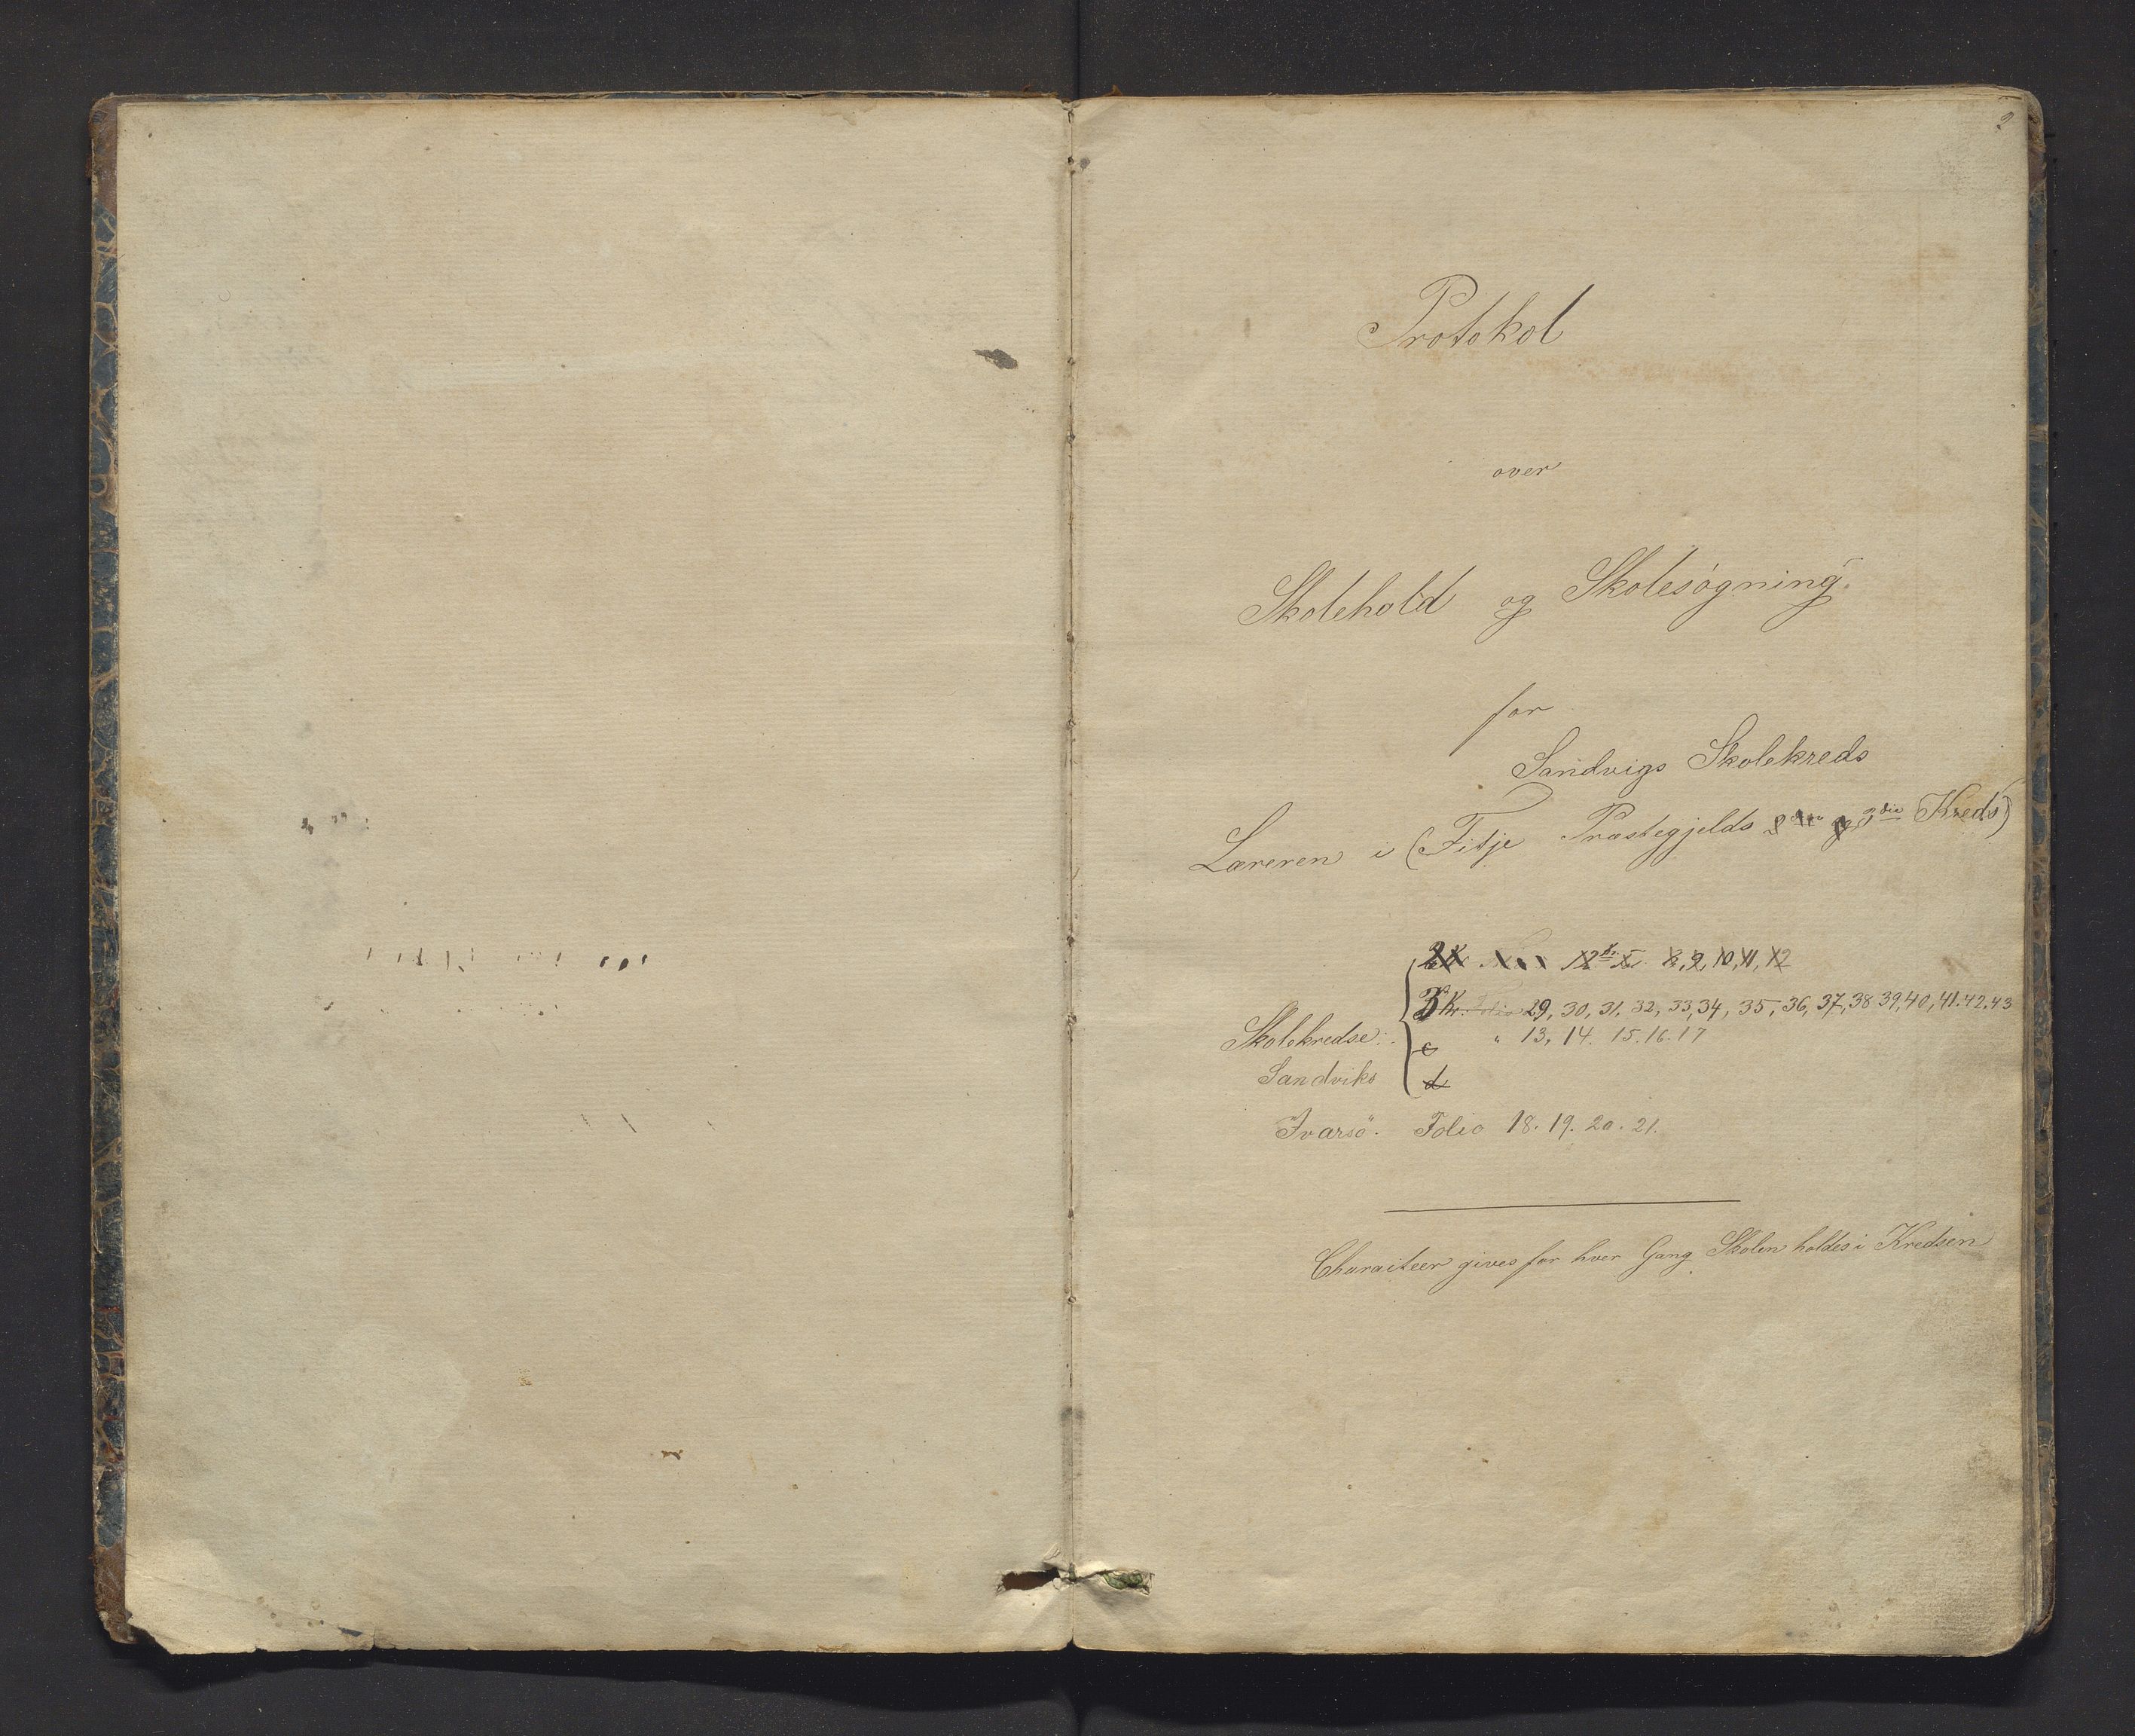 2
Protokol
over
Skolehold og Skolesøgning.
for
Sandvigs Skolekreds
Læreren i (Fitje Præstegjelds og 3die Kreds)
8, 9, 10, 11, 12
3 Kr. Folio 29, 30, 31, 32, 33, 34, 35, 36, 37, 38 39, 40, 41. 42. 43
Skolekredse: c " 13, 14. 15. 16. 17
Sandviks d
Ivarsö. Folio 18. 19. 20. 21.
Characteer gives for hver Gang Skolen holdes i Kredsen